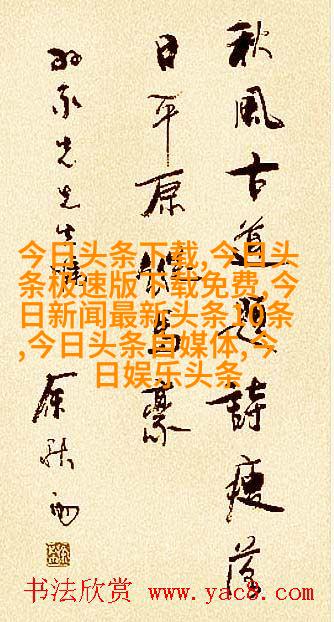 秋風古道題詩瘦落
日平原縱馬豪
先生
余秋雨
今日头条下载,今日头
条极速版下载免费,今
日新闻最新头条10条
,今日头条自媒体,今
日娱乐头条
书法欣赏 www.yac8.com